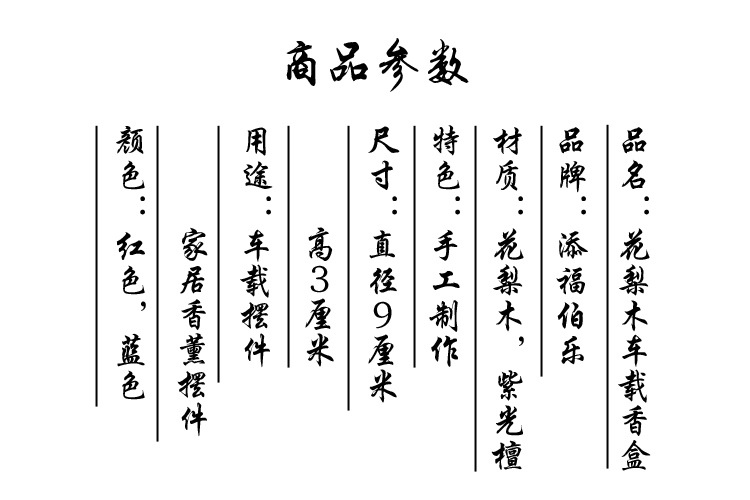 商品参数
品名：花梨木车载香盒
品牌：添福伯乐
材质：花梨木，紫光檀
特色：手工制作
尺寸：直径9厘米
高3厘米
用途：车载摆件
家居香薰摆件
颜色：红色，蓝色